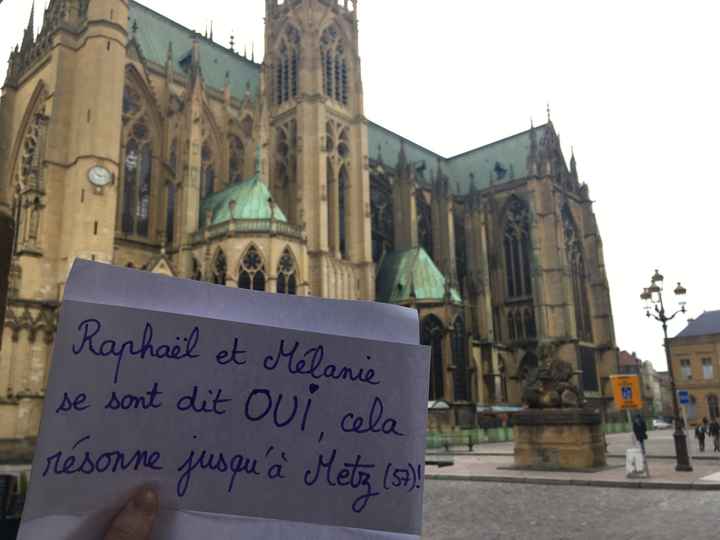 Raphaël et Mélanie
se sont dit OUi, cela
résonne jusqu'à Metz (57)!